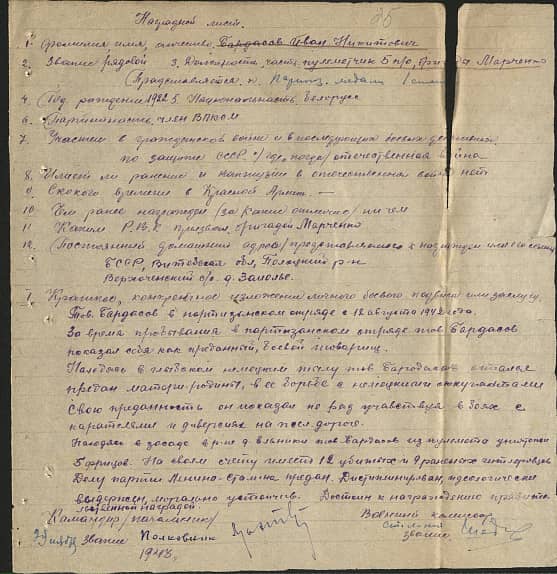 25
Наградной лист.
1. Фамилия, имя, отчество, Бардасов Иван Никитович
2. Звание рядовой 3. Должность, часть, пулеметчик 5 п/о, бригады Марченко
Представляется к Партиз. медали степ
4. Год рождения 1922 5. Национальность белорус
6. Партийность член ВЛКСМ
7. Участие в гражданской войне и в последующих боевых действиях
по защите СССР /где, когда/ отечественная война
8. Имеет ли ранения и контузии в отечественной войне нет
9. Скокого времени в Красной Армии —
10. Чем ранее награжден /за какие отличия/ ни чем
11. Каким Р.В.К призван, бригадой Марченко
12. Постоянный домашний адрес /представляемого к награжден или его семьи
БССР, Витебская обл, Полоцкий р-н
с/с д. Залозье.
1. Краткое, конкретное изложение личного боевого подвига или заслуг.
Тов. Бардасов в партизанском отряде с 18 августа 1942 года.
За время пребывания в партизанском отряде тов Бардасов
показал себя как преданный, боевой товарищ.
Находясь в глубоком немецком тылу тов Бардасов остался
предан матери-родины, в ее борьбе с немецкими оккупантами
Свою преданность он показал не раз участвуя в боях с
карателями и диверсиях на жел дороге.
Находясь в засаде в р-не д. тов Бардасов из пулемета уничтожил
5 фрицов. На своем счету имеет 12 убитых и раненых гитлеровцев
Делу партии Ленина-Сталина предан. Дисциплинирован, идеологически
выдержан, морально устойчив. Достоин к награждению правитель
ственной наградой.
Командир /начальник/ Военный комиссар
звание Полковник звание
1943г.